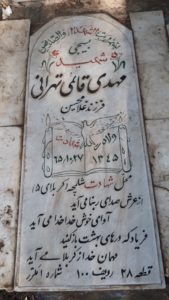 بسیجی
شهید
مهدی قائمی تهرانی
فرزند غلامحسین
ولادت
شهادت
۱۳۴۵
۶۵/۱۰/۲۷
محل شهادت شلمچه (کربلای ۵)
از عرش صدای ربنا می آید
آوای خوش خدا خدا می آید
فریاد که درهای بهشت باز کنید
مهمان خدا از کربلا می آید
قطعه ۲۸ ردیف ۱۰۰ شماره